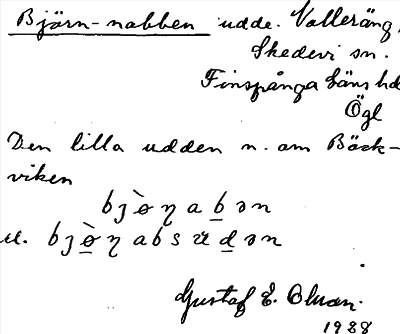 Björn-nabben udde. Valleräng,
Skedevi sn.
Finspånga läns hd
Ögl
Den lilla udden n. om Bäck-
viken
bjòηabən
el. bjòηabsŭdən
Gustaf E. Olson.
1938